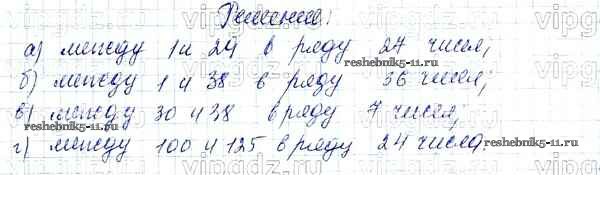 Решение:
а) между 1 и 24 в ряду 27 чисел;
б) между 1 и 38 в ряду 36 чисел;
в) между 30 и 38 в ряду 7 чисел;
г) между 100 и 125 в ряду 24 числа.
reshebnik5-11.ru
reshebnik5-11.ru
reshebnik5-11.ru
vipgdz.ru